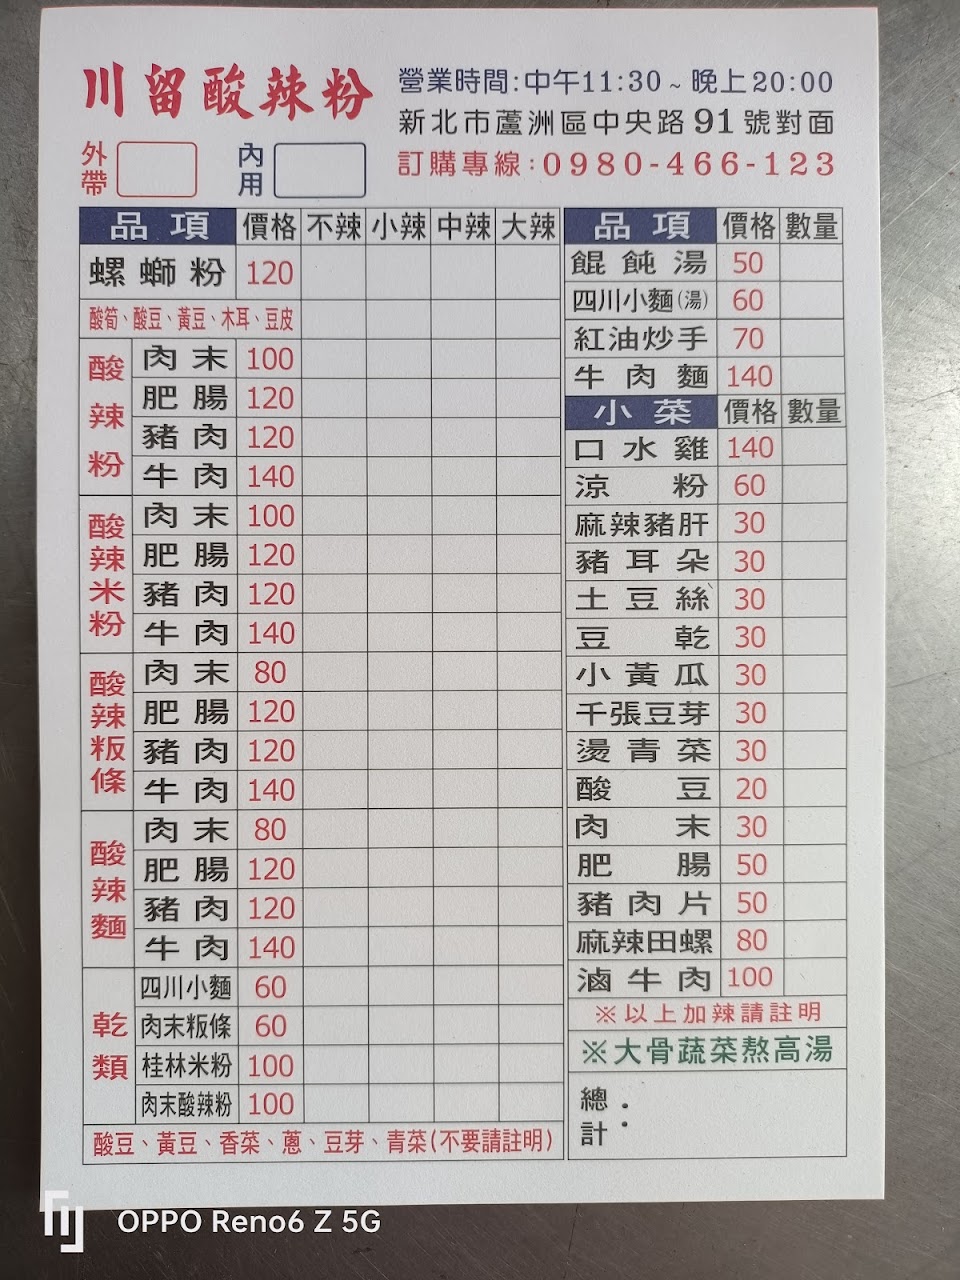 川留酸辣粉
營業時間:中午11:30~晚上20:00
新北市蘆洲區中央路91號對面
訂購專線:0980-466-123
外帶
內用
品項 價格 不辣 小辣 中辣 大辣
螺螄粉 120
酸筍、酸豆、黃豆、木耳、豆皮
酸辣粉
肉末 100
肥腸 120
豬肉 120
牛肉 140
酸辣米粉
肉末 100
肥腸 120
豬肉 120
牛肉 140
酸辣粄條
肉末 80
肥腸 120
豬肉 120
牛肉 140
酸辣麵
肉末 80
肥腸 120
豬肉 120
牛肉 140
乾類
四川小麵 60
肉末粄條 60
桂林米粉 100
肉末酸辣粉 100
酸豆、黃豆、香菜、蔥、豆芽、青菜(不要請註明)
品項 價格 數量
餛飩湯 50
四川小麵(湯) 60
紅油炒手 70
牛肉麵 140
小菜 價格 數量
口水雞 140
涼粉 60
麻辣豬肝 30
豬耳朵 30
土豆絲 30
豆乾 30
小黃瓜 30
千張豆芽 30
燙青菜 30
酸豆 20
肉末 30
肥腸 50
豬肉片 50
麻辣田螺 80
滷牛肉 100
※以上加辣請註明
※大骨蔬菜熬高湯
總計:
OPPO Reno6 Z 5G